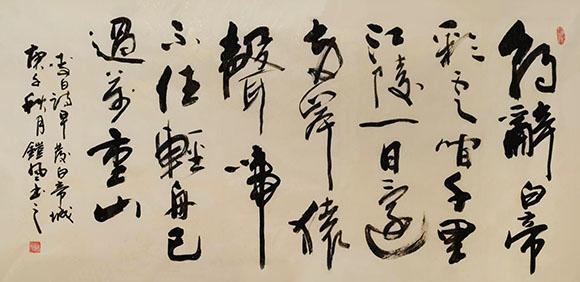 朝辭白帝
彩雲間千里
江陵一日還
兩岸猿
聲啼
不住輕舟已
過萬重山
李白詩早發白帝城
庚子秋月書之